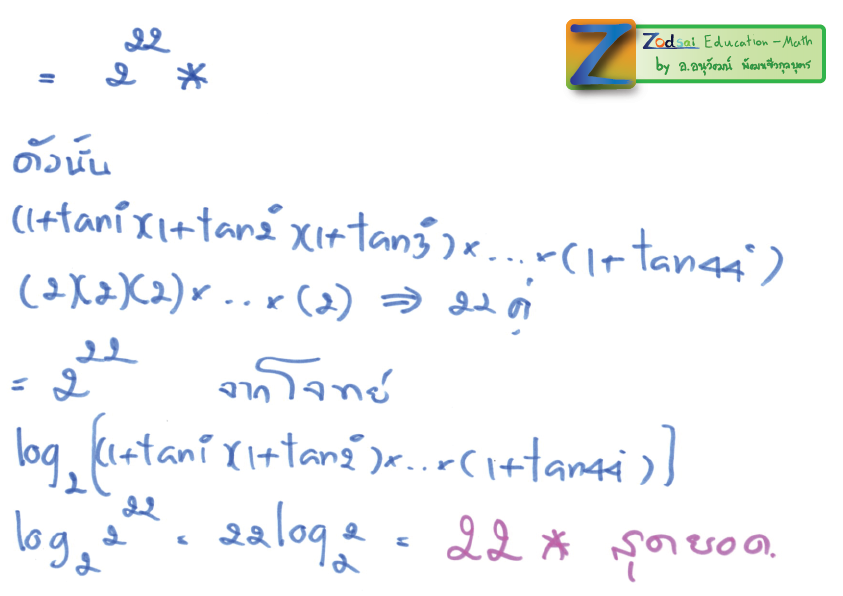 = 2^22 *
Zodsai Education - Math
by อ.อนุวัฒน์ พัฒนชัวกุลบุตร
ดังนั้น
(1+tan1°)(1+tan2°)(1+tan3°)×...×(1+tan44°)
(2)(2)(2)×...×(2) ⇒ 22 คู่
= 2^22 จากโจทย์
log₂[(1+tan1°)(1+tan2°)×...×(1+tan44°)]
log₂ 2^22 = 22 log₂ 2 = 22 * สุดยอด.